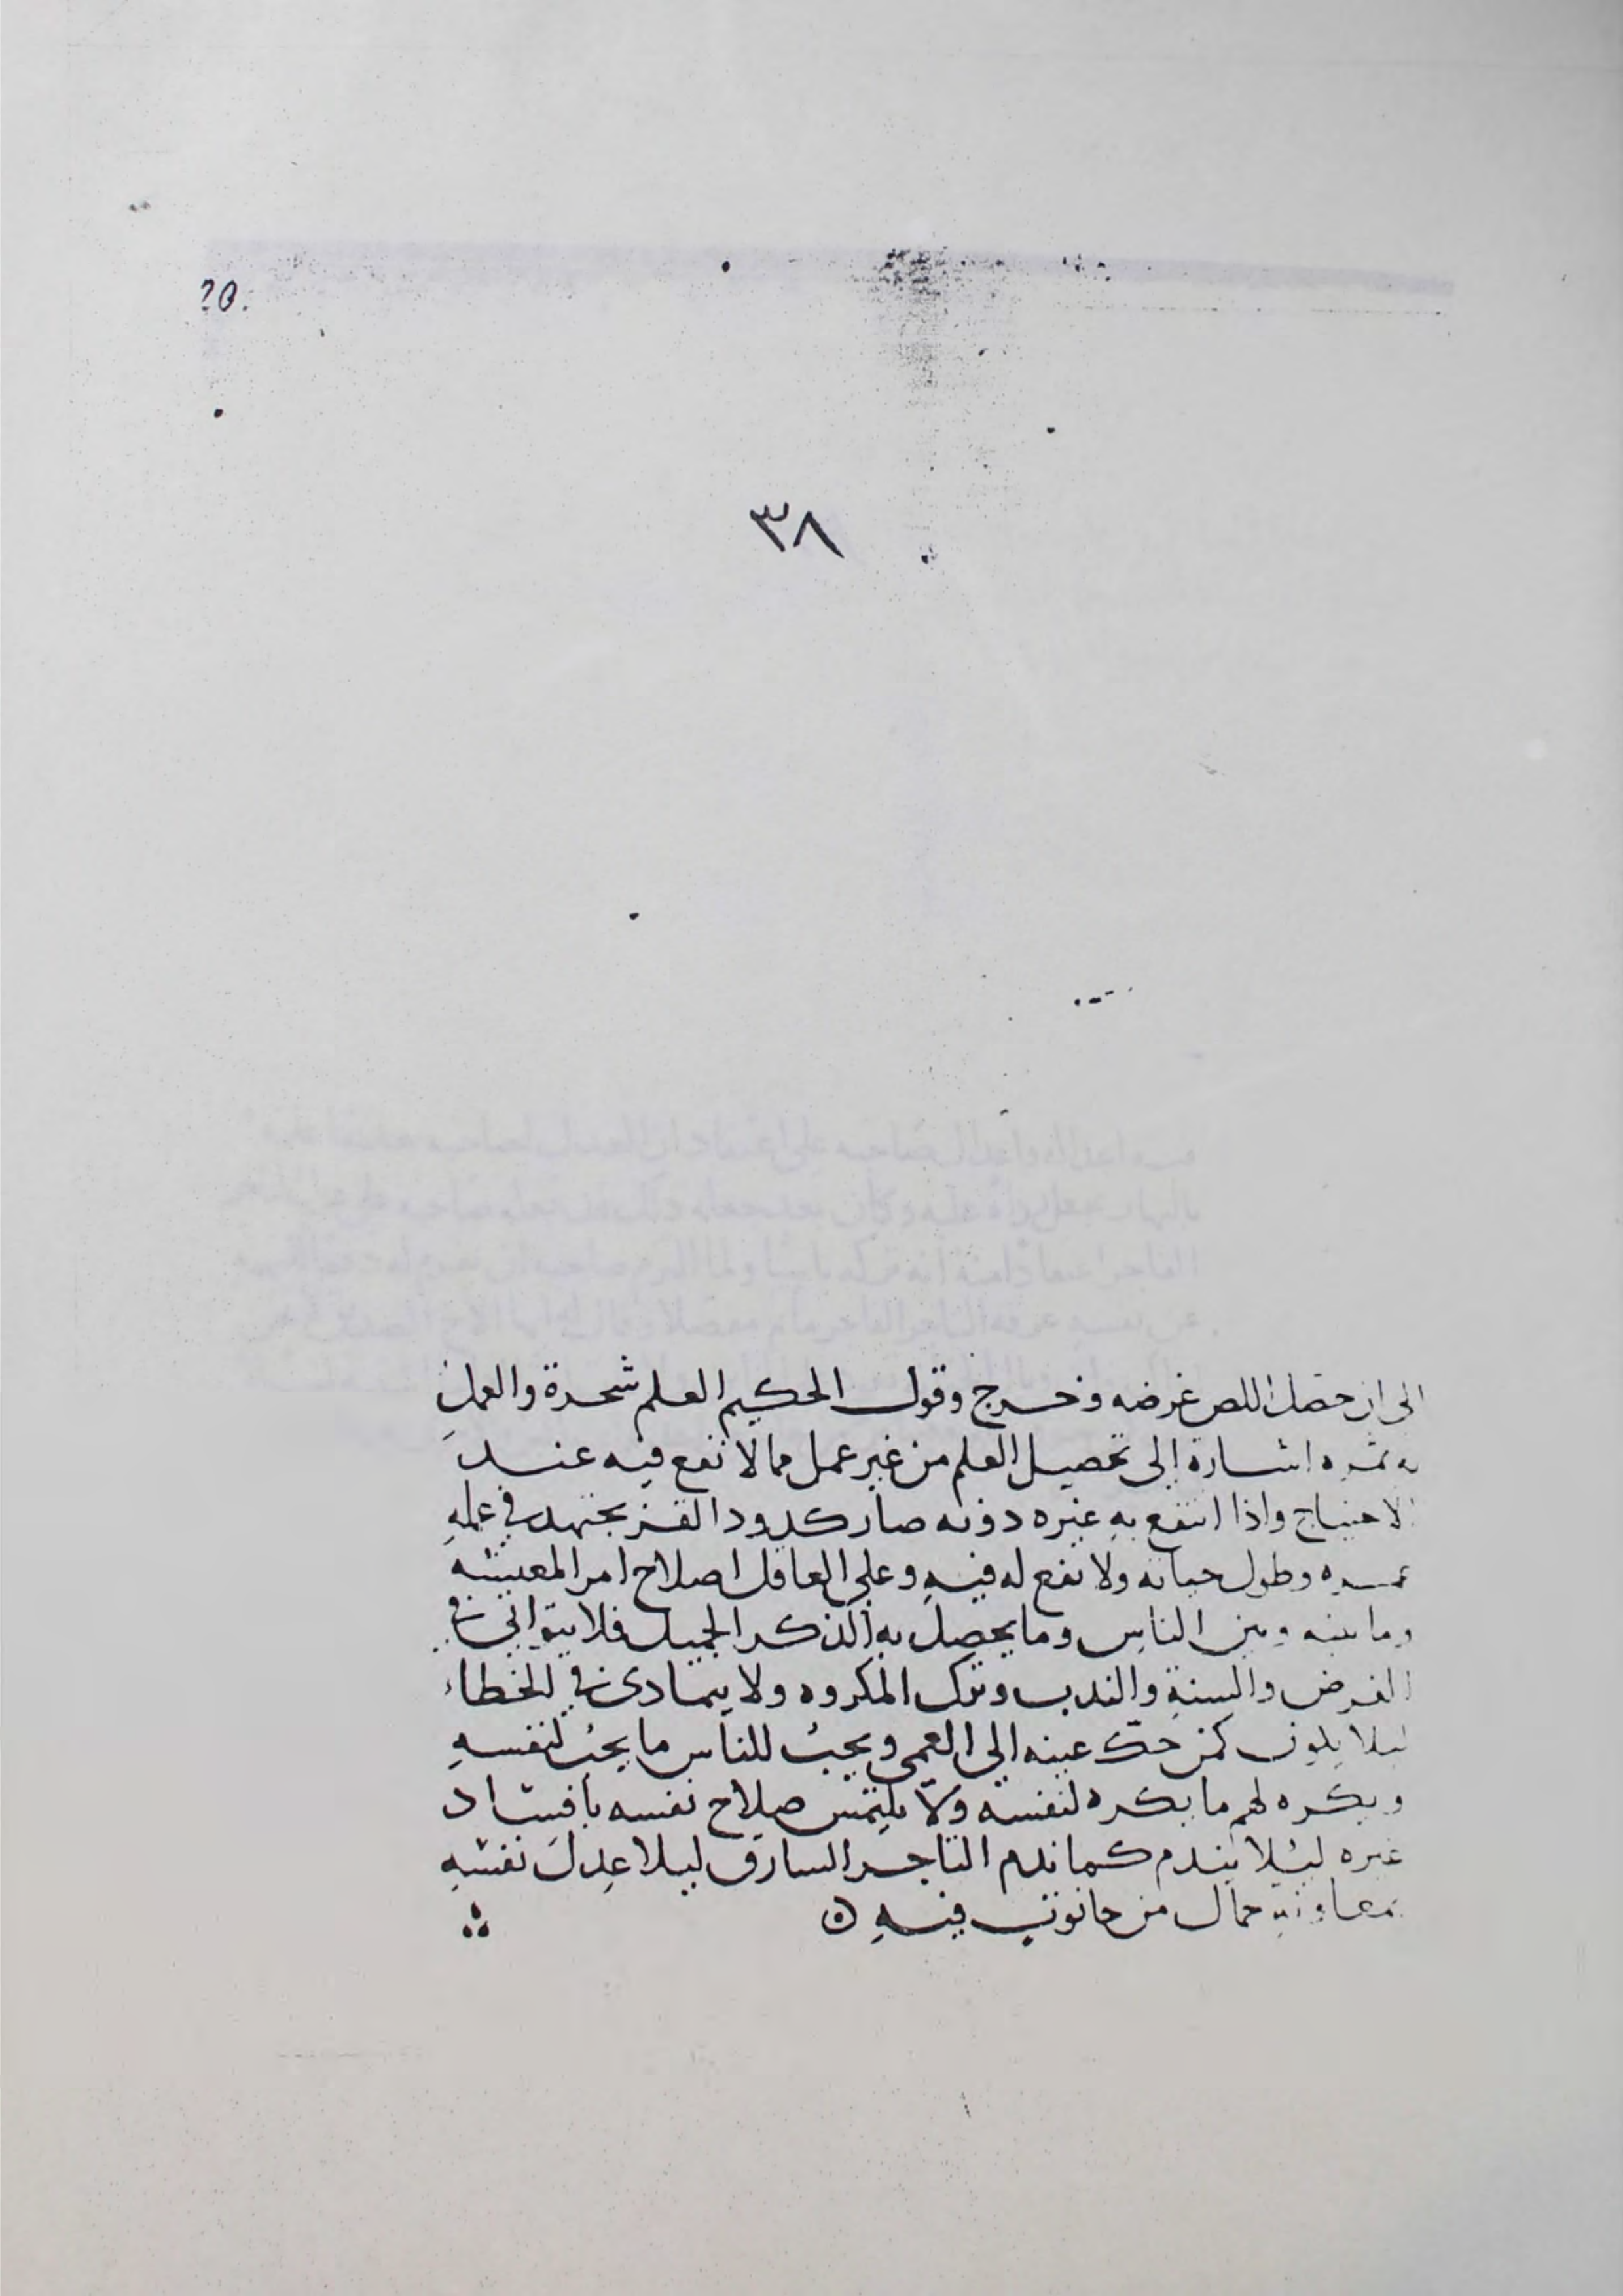 20.
٣٨
الى ان حصل اللص غرضه وخرج وقول الحكيم العلم شجرة والعمل
به ثمره اشارة الى تحصيل العلم من غير عمل مما لا نفع فيه عند
الاحتياج واذا انتفع به غيره دونه صار كدود القز يجتهد في عمله
عمره وطول حياته ولا نفع له فيه وعلى العاقل اصلاح امر المعيشه
وما بينه وبين الناس وما يحصل به الذكر الجميل فلا يتوانى في
الفرض والسنة والندب وترك المكروه ولا يتمادى في الخطاء
ليلا يكون كمن حك عينه الى العمى ويحب للناس ما يحب لنفسه
ويكره لهم ما يكره لنفسه ولا يلتمس صلاح نفسه بافساد
غيره ليلا يندم كما ندم التاجر السارق ليلا عدل نفسه
بمعاونة حمال من حانوت فيه